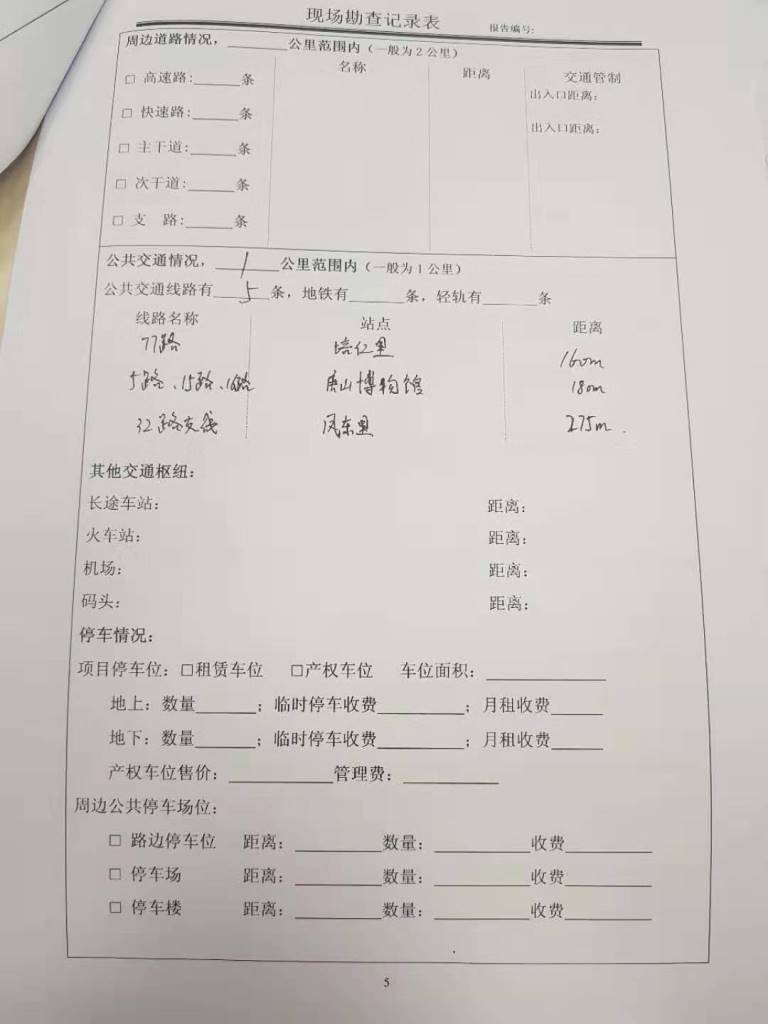 现场勘查记录表 报告编号:
周边道路情况，______公里范围内（一般为2公里）
名称 距离 交通管制
□ 高速路:_____条
出入口距离：
□ 快速路:_____条
出入口距离：
□ 主干道:_____条
□ 次干道:_____条
□ 支 路:_____条
公共交通情况，1公里范围内（一般为1公里）
公共交通线路有5条，地铁有______条，轻轨有______条
线路名称 站点 距离
77路 培仁里 160m
5路、15路、16路 唐山博物馆 180m
32路支线 凤东里 275m
其他交通枢纽：
长途车站： 距离：
火车站： 距离：
机场： 距离：
码头： 距离：
停车情况：
项目停车位：□租赁车位 □产权车位 车位面积：______
地上：数量______；临时停车收费______；月租收费______
地下：数量______；临时停车收费______；月租收费______
产权车位售价：______管理费：______
周边公共停车场位：
□ 路边停车位 距离：______数量：______收费______
□ 停车场 距离：______数量：______收费______
□ 停车楼 距离：______数量：______收费______
5